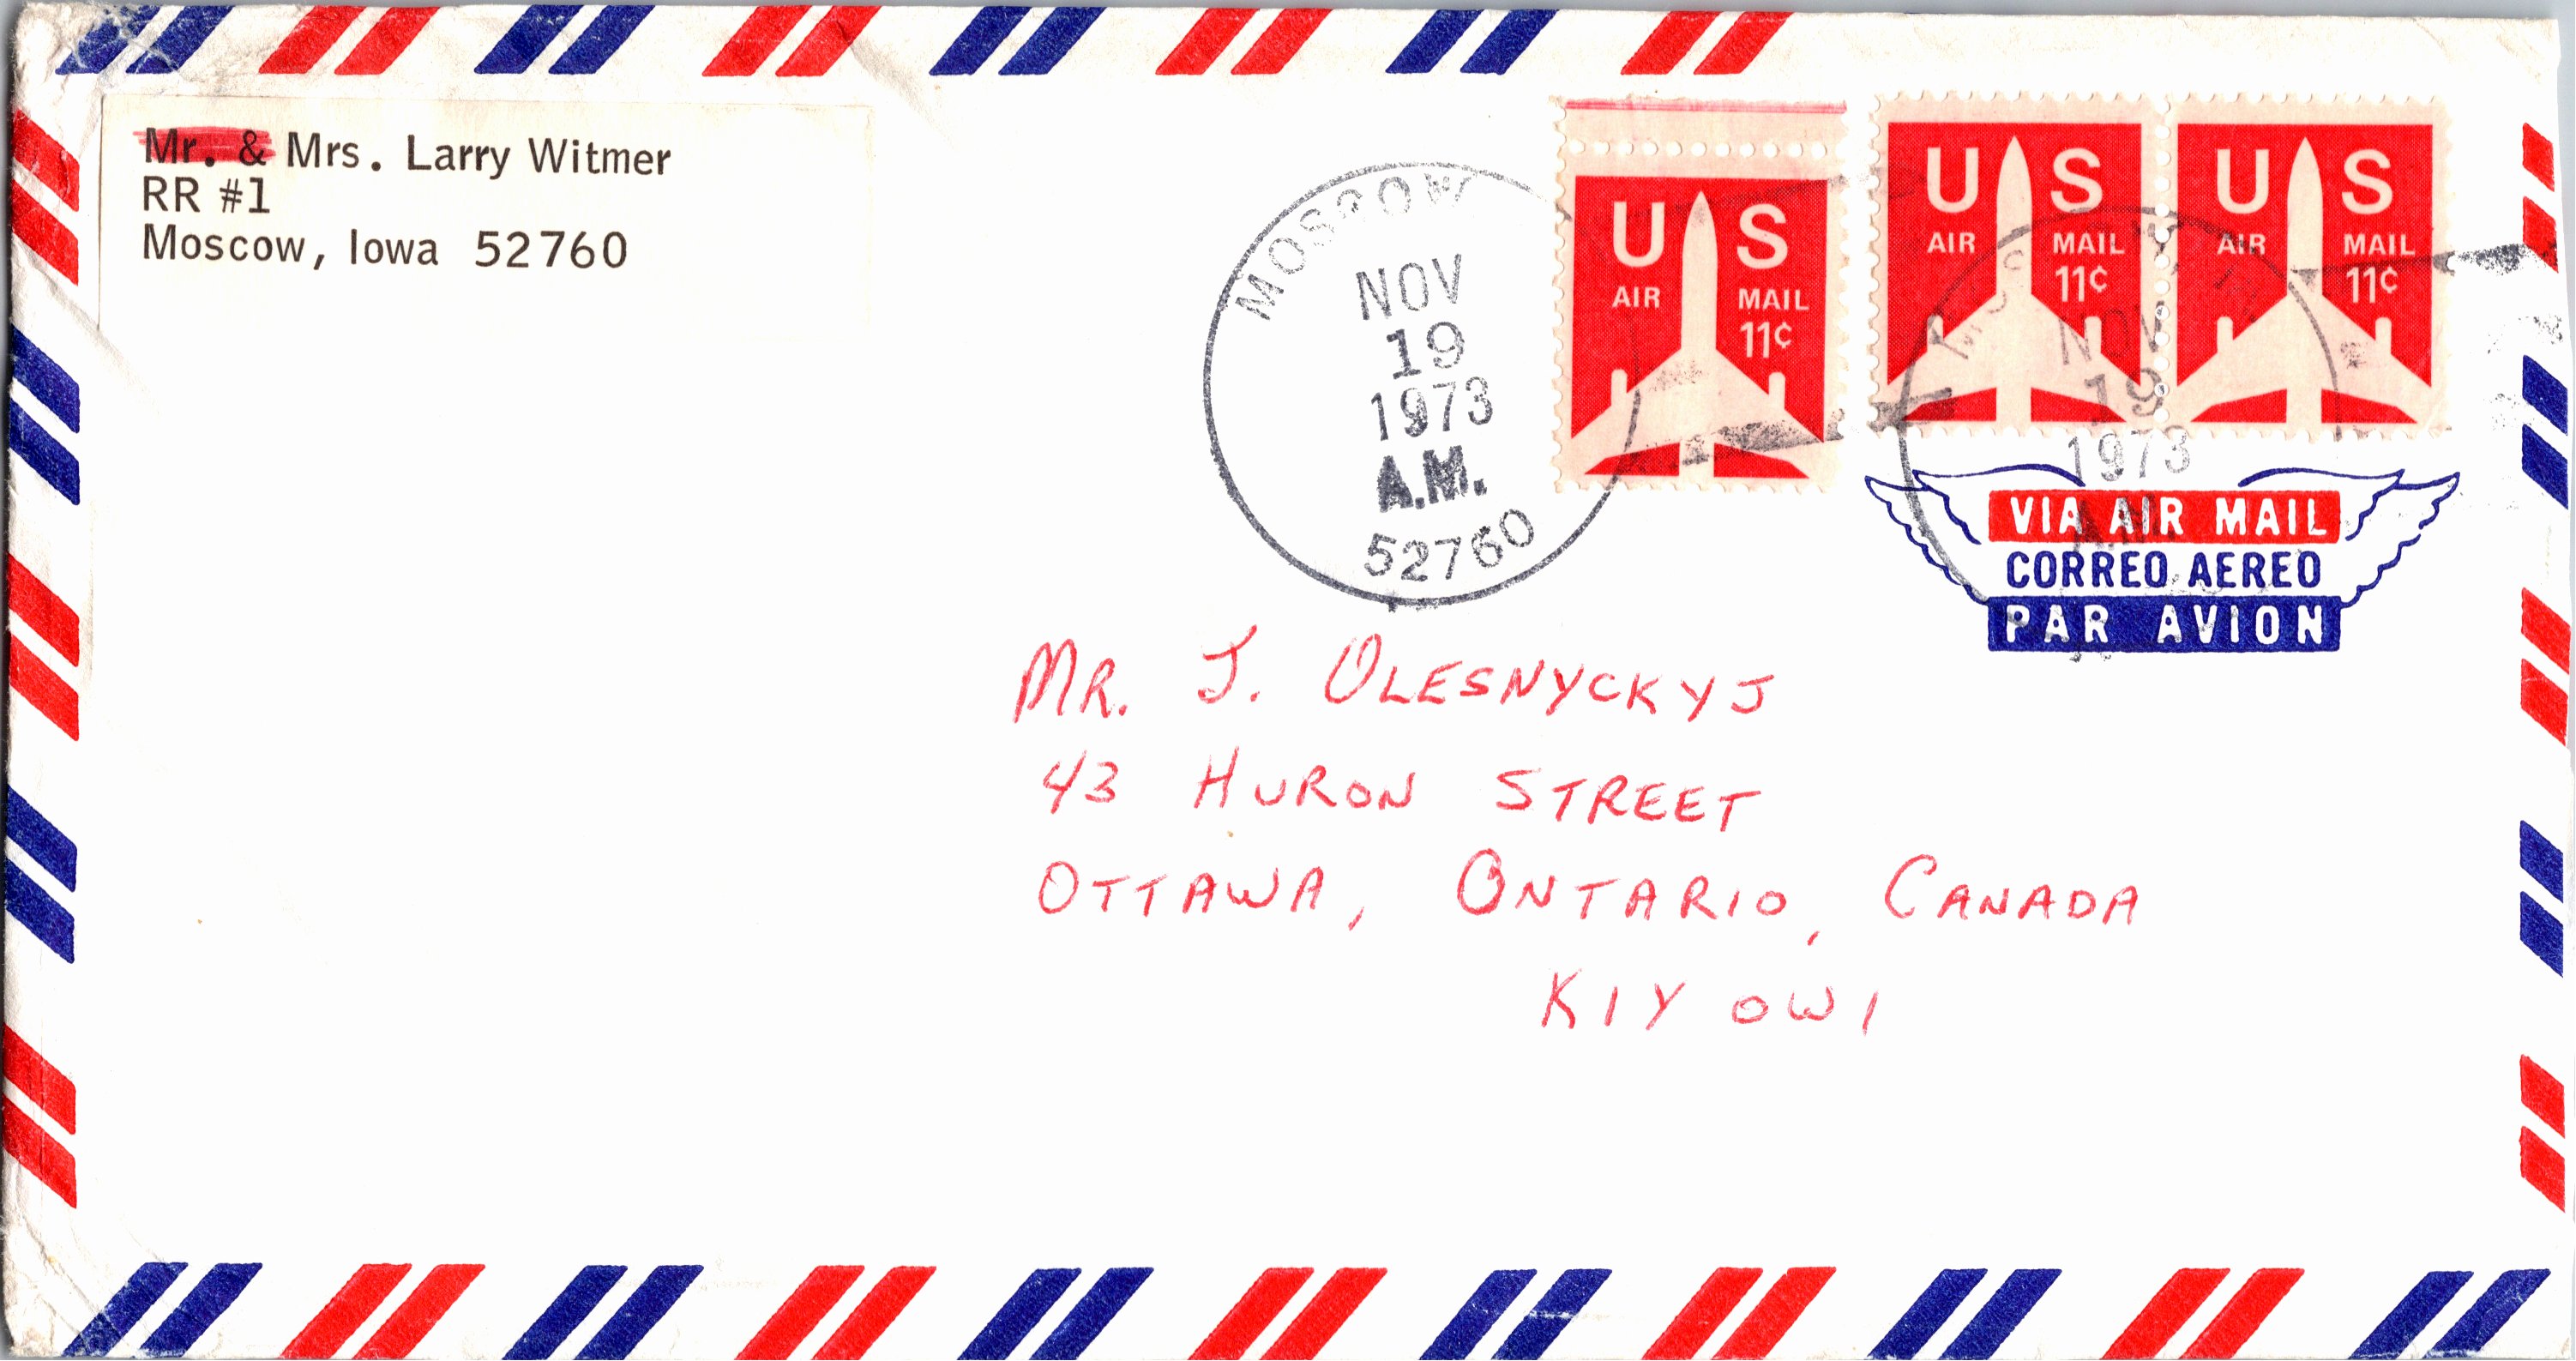 Mr. & Mrs. Larry Witmer
RR #1
Moscow, Iowa 52760
MOSCOW
NOV
19
1973
A.M.
52760
U S
AIR MAIL
11¢
U S
AIR MAIL
11¢
U S
AIR MAIL
11¢
NOV
19
1973
A.M.
VIA AIR MAIL
CORREO AEREO
PAR AVION
MR. J. OLESNYCKYJ
43 HURON STREET
OTTAWA, ONTARIO, CANADA
K1Y OW1